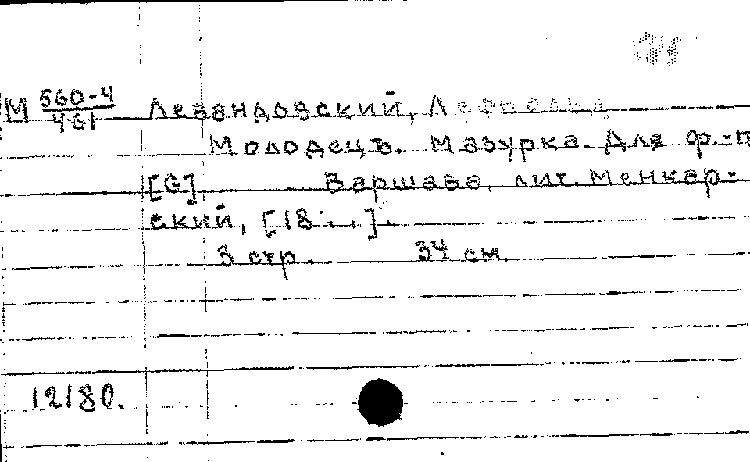 М 560-4/461 Левандовский, Леопольд
Молодецъ. Мазурка. Для ф.-п
[G] Варшава, лит. Менкар-
ский, [18...].
3 стр. 34 см.
12180.